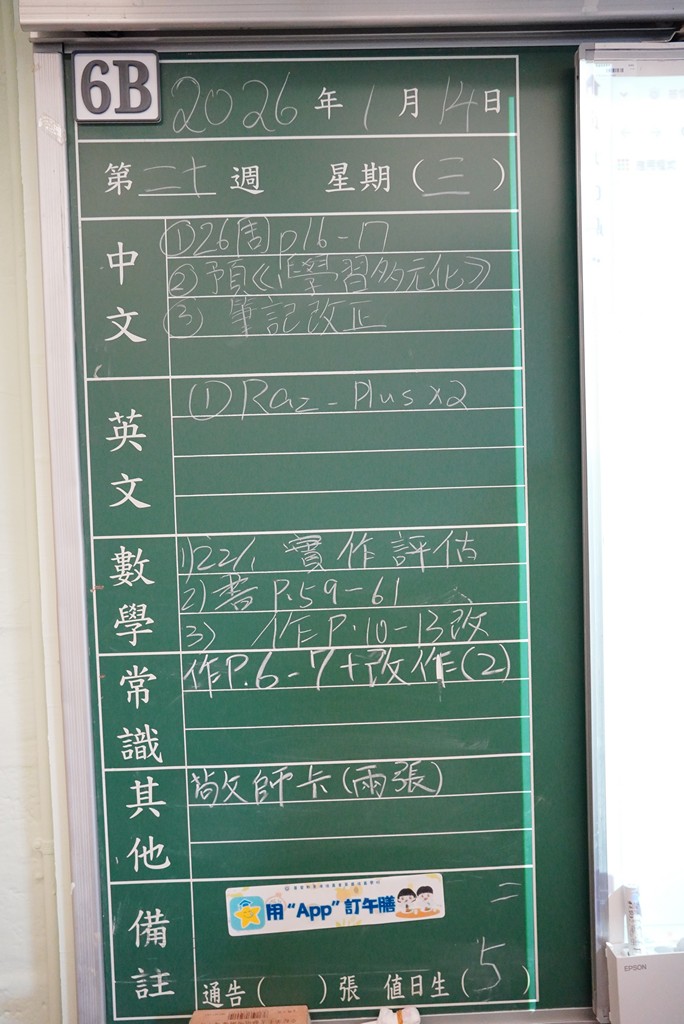 6B
2026年1月14日
第二十週 星期(三)
中文
①26周p16-17
②預《學習多元化》
③ 筆記改正
英文
①Raz-Plus x2
數學
1)22/1 實作評估
2)書P.59-61
3) 作P.10-13改
常識
作P.6-7+改作(2)
其他
敬師卡(兩張)
備註
用“App”訂午膳
通告( )張 值日生(5)
EPSON